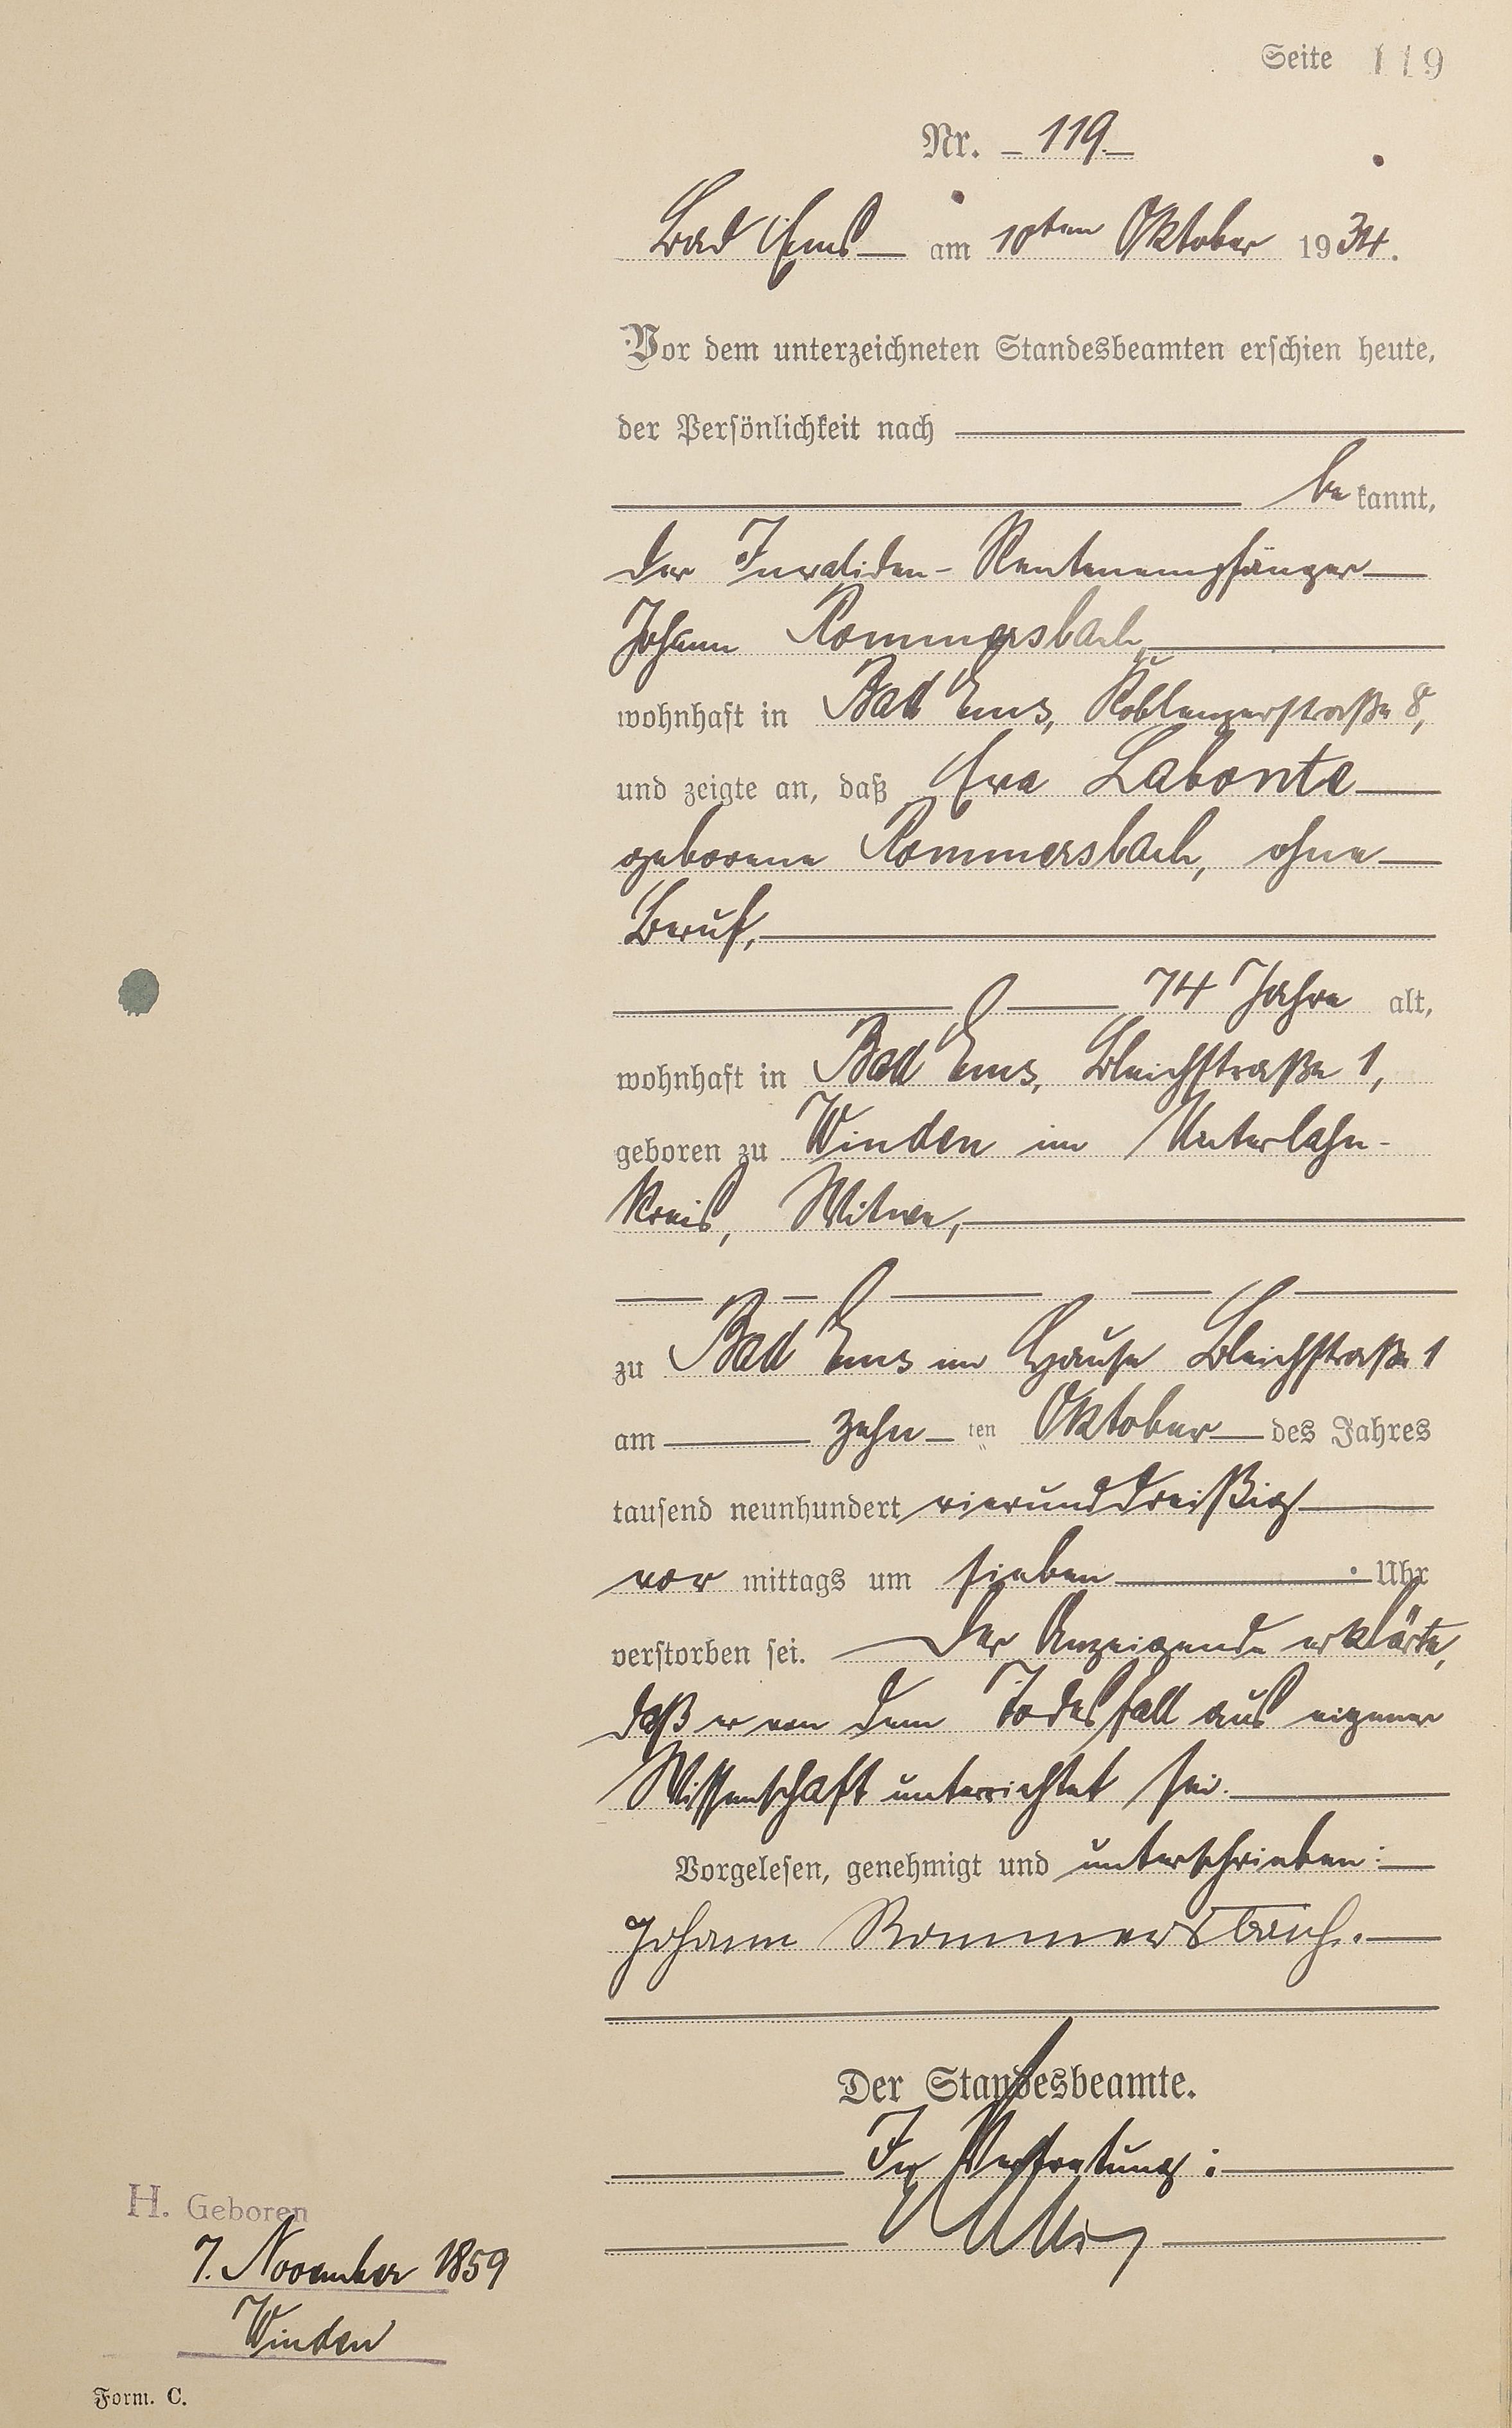 Seite 119
Nr. 119
Bad Ems am 10ten Oktober 1934.
Vor dem unterzeichneten Standesbeamten erschien heute,
der Persönlichkeit nach
bekannt,
der Invaliden-Rentenempfänger
Johann Rommersbach,
wohnhaft in Bad Ems, Koblenzerstraße 8,
und zeigte an, daß Eva Labonte
geborene Rommersbach, ohne
Beruf,
74 Jahre alt,
wohnhaft in Bad Ems, Bleichstraße 1,
geboren zu Winden im Unterlahn-
kreis, Witwe,
zu Bad Ems im Hause Bleichstraße 1
am zehn ten Oktober des Jahres
tausend neunhundert vierunddreißig
vor mittags um sieben Uhr
verstorben sei. Der Anzeigende erklärte,
daß er von dem Todesfall aus eigener
Wissenschaft unterrichtet sei.
Vorgelesen, genehmigt und unterschrieben:
Johann Rommersbach.
Der Standesbeamte.
In Vertretung:
H. Geboren
7. November 1859
Winden
Form. C.